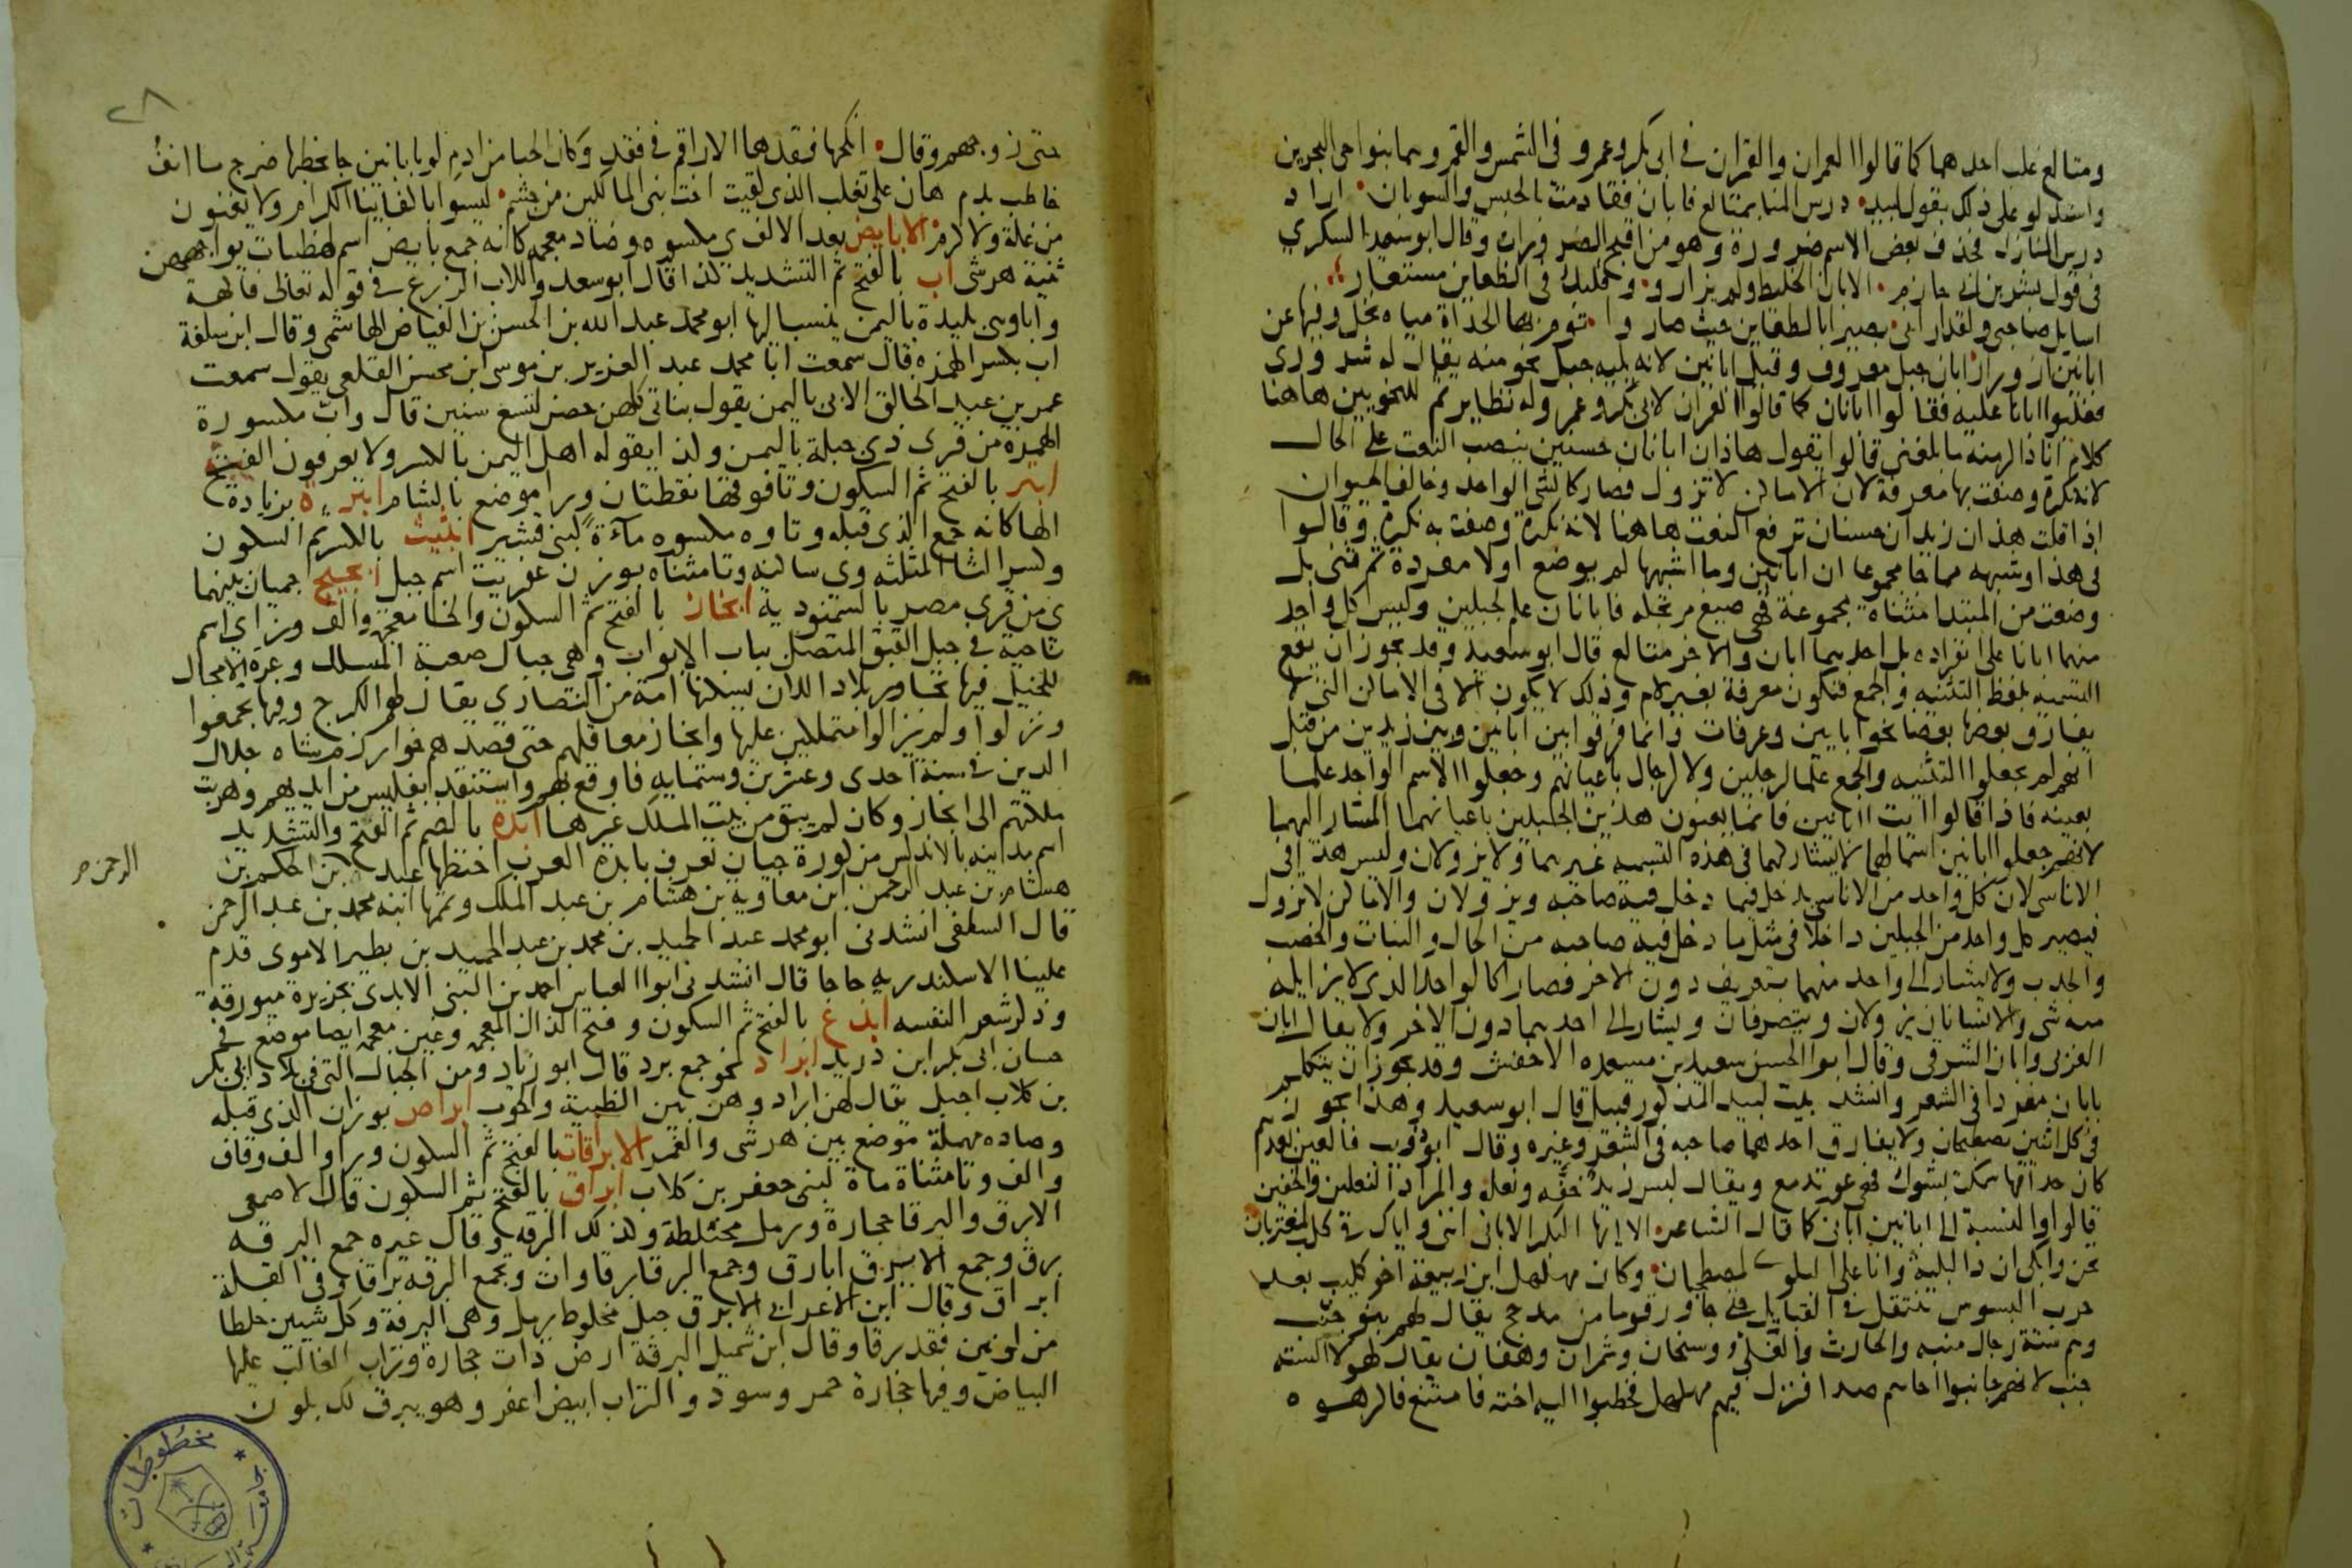 ومتالع غلب احدهما كما قالوا العمران والقمران في ابى بكر وعمر وفى الشمس والقمر وهما بنواحى البحرين
واستدلو على ذلك بقول لبيد درس المنا بمتالع فابان فتقادمت بالحبس والسوبان اراد
درس المنازل فحذف بعض الاسم ضرورة وهو من اقبح الضرورات وقال ابو سعيد السكري
فى قول بشر بن ابى حازم الابان الخليط ولم يزاروا وقلبك فى الظعاين مستعار
اسايل صاحبى ولقد ارانى بصيرا بالظعاين حيث صاروا تؤم بها الحداة مياه نخل وفيها عن
ابانين ازورار ابان جبل معروف وقيل ابانين لانه يليه جبل نحو منه يقال له شرورى
فغلبوا ابانا عليه فقالوا ابانان كما قالوا العمران لابى بكر وعمر وله نظاير ثم للنحويين هاهنا
كلام انا ذاكر منه ما بلغنى قالوا يقول هاذان ابانان حسنين ينصب النعت على الحال
لانه نكرة وصفت بها معرفة لان الاماكن لا تزول فصار كالشى الواحد وخالف الحيوان
اذا قلت هذان زيدان حسنان ترفع النعت هاهنا لانه نكرة وصفت به نكرة وقالوا
فى هذا وشبهه مما جا مجموعا ان ابانين وما اشبهها لم يوضع اولا مفردة ثم ثنى بل
وضعت من المبتدا مثناة مجموعة فهى صيغ مرتجله فابانان علم لجبلين وليس كل واحد
منهما ابانا على انفراده بل احدهما ابان والاخر متالع قال ابو سعيد وقد يجوز ان يقع
التسمية بلفظ التثنيه والجمع فتكون معرفة بغير لام وذلك لا يكون الا فى الاماكن التى لا
يفارق بعضها بعضا نحو ابانين وعرفات وانما فرقوا بين ابانين وبين زيدين من قبل
انهم لم يجعلوا التثنيه والجمع علما لرجلين ولا لرجال باعيانهم وجعلوا الاسم الواجد علما
بعينه فاذا قالوا ايت ابانين فانما يعنون هذين الجبلين باعيانهما المشار اليهما
لانهم جعلوا ابانين اسما لهما لا يشار لهما فى هذه التسميه غيرهما ولا يزولان وليس هذا فى
الاناسى لان كل واحد من الاناسى يدخل فيما دخل فيه صاحبه ويزولان والاماكن لا تزول
فيصير كل واحد من الجبلين داخلا فى مثل ما دخل فيه صاحبه من الحال والثبات والخصب
والجدب ولا يشار الى واحد منهما بتعريف دون الاخر فصارا كالواحد الذى لا يزايله
منه شى والانسانان يزولان ويتصرفان ويشار الى احدهما دون الاخر ولا يقال ابان
الغربى وابان الشرقى وقال ابو الحسن سعيد بن مسعده الاخفش وقد يجوز ان يتكلم
بابان مفردا فى الشعر وانشد بيت لبيد المذكور قبيل قال ابو سعيد وهذا يجوز
فى كل اثنين يصطحبان ولا يفارق احدهما صاحبه فى الشعر وغيره وقال ابو ذويب فالعين بعدهم
كان حداقها سملت بشوك فهى عور تدمع ويقال لبس زيد خفه ونعله والمراد النعلين والخفين
قالوا والنسبة الى ابانين ابانى كما قال الشاعر الا ايها البكر الابانى اننى واياك فى كلب لمغتربان
تحن وابكى ان ذا لبلية وانا على البلوى لمصطحبان وكان مهلهل ابن ربيعة اخو كليب بعد
حرب البسوس تنتقل فى القبايل حتى جاور قوما من مذحج يقال لهم بنو جنب
وهم ستة رجال منبه والحارث والغلى وسنحان وشمران وهفان يقال لهولا الستة
جنب لانهم جانبوا اخاهم صدا فنزل فيهم مهلهل فخطبوا اليه اخته فامتنع فاكرهوه
٢٨
حتى زوجهم وقال انكحها فقدها الاراقم فى فقد وكان الحبا من ادم لو بابانين جا يخطبها ضرج ما انف
خاطب بدم هان على تغلب الذى لقيت اخت بنى المالكين من جشم ليسوا بالفاينا الكرام ولا يغنون
من غلة ولا كرم الابايض بعد الالف ى مكسوه وضاد معجمه كانه جمع بايض اسم لهضبات تواجههن
ثنية هرشى اب بالفتح ثم التشديد كذا قال ابو سعد والاب الزرع فى قوله تعالى فاكهة
وابا وهى بليدة باليمن ينسب اليها ابو محمد عبد الله بن الحسن بن الفياض الهاشمى وقال ابن سلفة
اب بكسر الهمزه قال سمعت ابا محمد عبد العزيز بن موسى ابن محسن القلعى يقول سمعت
عمر بن عبد الخالق الابى باليمن يقول بناتى كلهن حضن لتسع سنين قال واب مكسورة
الهمزة من قرى ذى جبلة باليمن ولذا يقوله اهل اليمن بالكسر ولا يعرفون الفتح
ابتر بالفتح ثم السكون وتا فوقها نقطتان ورا موضع بالشام ابترة بزيادة
الها كانه جمع الذى قبله وتاوه مكسوه ماءة لبنى قشير ابثيت بالكسر ثم السكون
وكسر الثا المثلثه وى ساكنه وتا مثناه بوزن عفريت اسم جبل ابجيج جيمان بينهما
ى من قرى مصر بالسمنوديه ابخاز بالفتح ثم السكون والخا معجمه والف وزاى اسم
ناحية فى جبل القبق المتصل بباب الابواب وهى جبال صعبة المسلك وعرة لا مجال
للخيل فيها تجاور بلاد اللان يسكنها امة من النصارى يقال لهم الكرج وفيها تجمعوا
ونزلوا ولم يزالوا متملكين عليها وابخاز معاقلهم حتى قصدهم خوارزمشاه جلال
الدين فى سنة احدى وعشرين وستمايه فاوقع بهم واستنقد تفليس من ايديهم وهربت
ملكتهم الى ابخاز وكان لم يبق من بيت الملك غيرها ابدة بالضم ثم الفتح والتشديد
اسم مدينه بالاندلس من كورة جيان تعرف بابدة العرب اختطها عبد بن الحكم بن
الرحمن صح
هشام بن عبد الرحمن ابن معاويه بن هشام بن عبد الملك وتممها ابنه محمد بن عبد الرحمن
قال السلفى انشدنى ابو محمد عبد المجيد بن محمد بن عبد الحميد بن بطير الاموى قدم
علينا الاسكندريه حاجا قال انشدنى ابو العباس احمد بن البنى الابدى بجزيرة ميورقة
وذكر شعرا لنفسه ابذغ بالفتح ثم السكون وفتح الذال المعجمه وغين معجمه ايضا موضع فى
حسان ابى بكر ابن دريد ابراد نحو جمع برد قال ابو زياد ومن الجبال التى فى بلاد ابى بكر
بن كلاب اجبل يقال لهن ابراد وهن بين الظبية والحوب ابراص بوزن الذى قبله
وصاده مهملة موضع بين هرشى والغمر الابراقات بالفتح ثم السكون ورا والف وقاف
والف وتا مثناة ماة لبنى جعفر بن كلاب ابراق بالفتح ثم السكون قال الاصمعى
الابرق والبرقا حجارة ورمل مختلطة وكذلك البرقه وقال غيره جمع البرقه
برق وجمع الابرق ابارق وجمع البرقا برقاوات وتجمع البرقه براقا وفى القلة
ابراق وقال ابن الاعرابى الابرق جبل مخلوط برمل وهى البرقة وكل شيين خلطا
من لونين فقد برقا وقال ابن شميل البرقة ارض ذات حجارة وتراب الغالب عليها
البياض وفيها حجارة حمر وسود والتراب ابيض اعفر وهو يبرق لك بلون
مخطوطات
جامعة